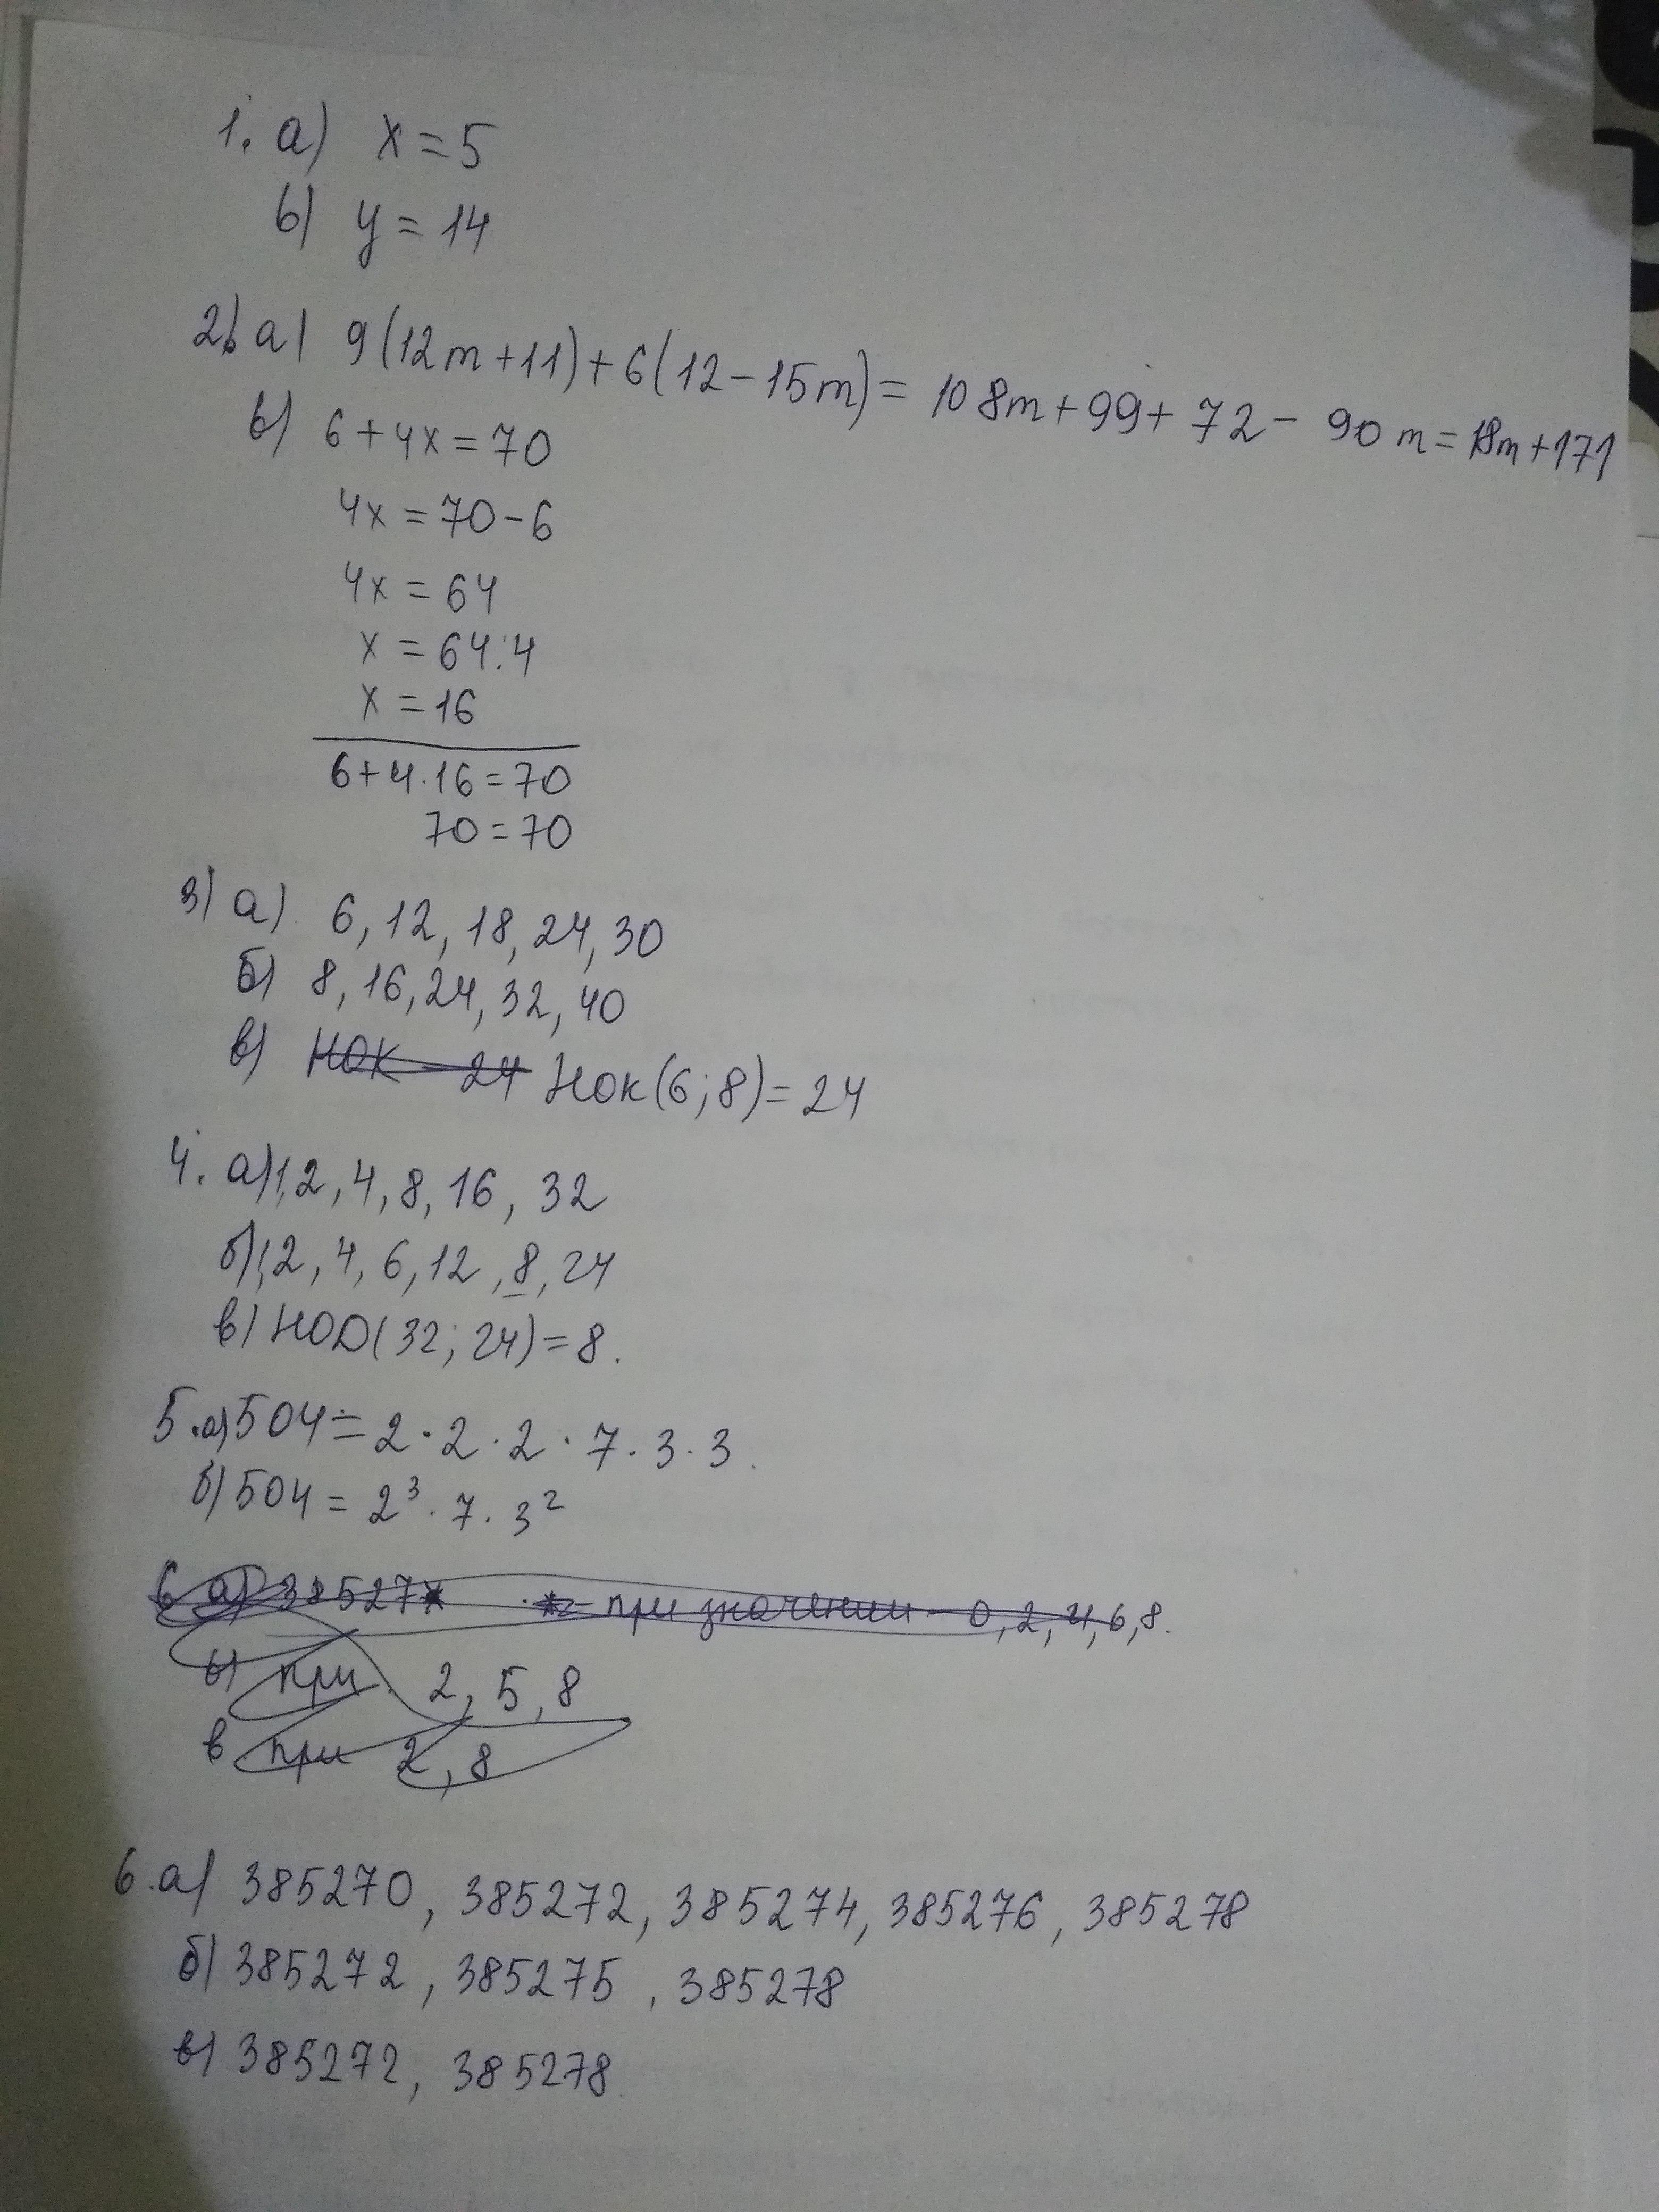 1. а) x = 5
б) y = 14
2. а) 9(12m+11)+6(12-15m)= 108m+99+72-90m=18m+171
в) 6+4x=70
4x=70-6
4x=64
x=64:4
x=16
6+4·16=70
70=70
3) а) 6, 12, 18, 24, 30
б) 8, 16, 24, 32, 40
в) НОК 24 НОК(6;8)=24
4. а) 1,2,4,8,16,32
б) 1,2,4,6,12,8,24
в) НОD(32;24)=8.
5.а) 504=2·2·2·7·3·3
б) 504=2³·7·3²
6 а) 38527* *= при значении - 0,2,4,6,8.
б) при 2,5,8
в при 2,8
6.а) 385270, 385272, 385274, 385276, 385278
б) 385272, 385275, 385278
в) 385272, 385278